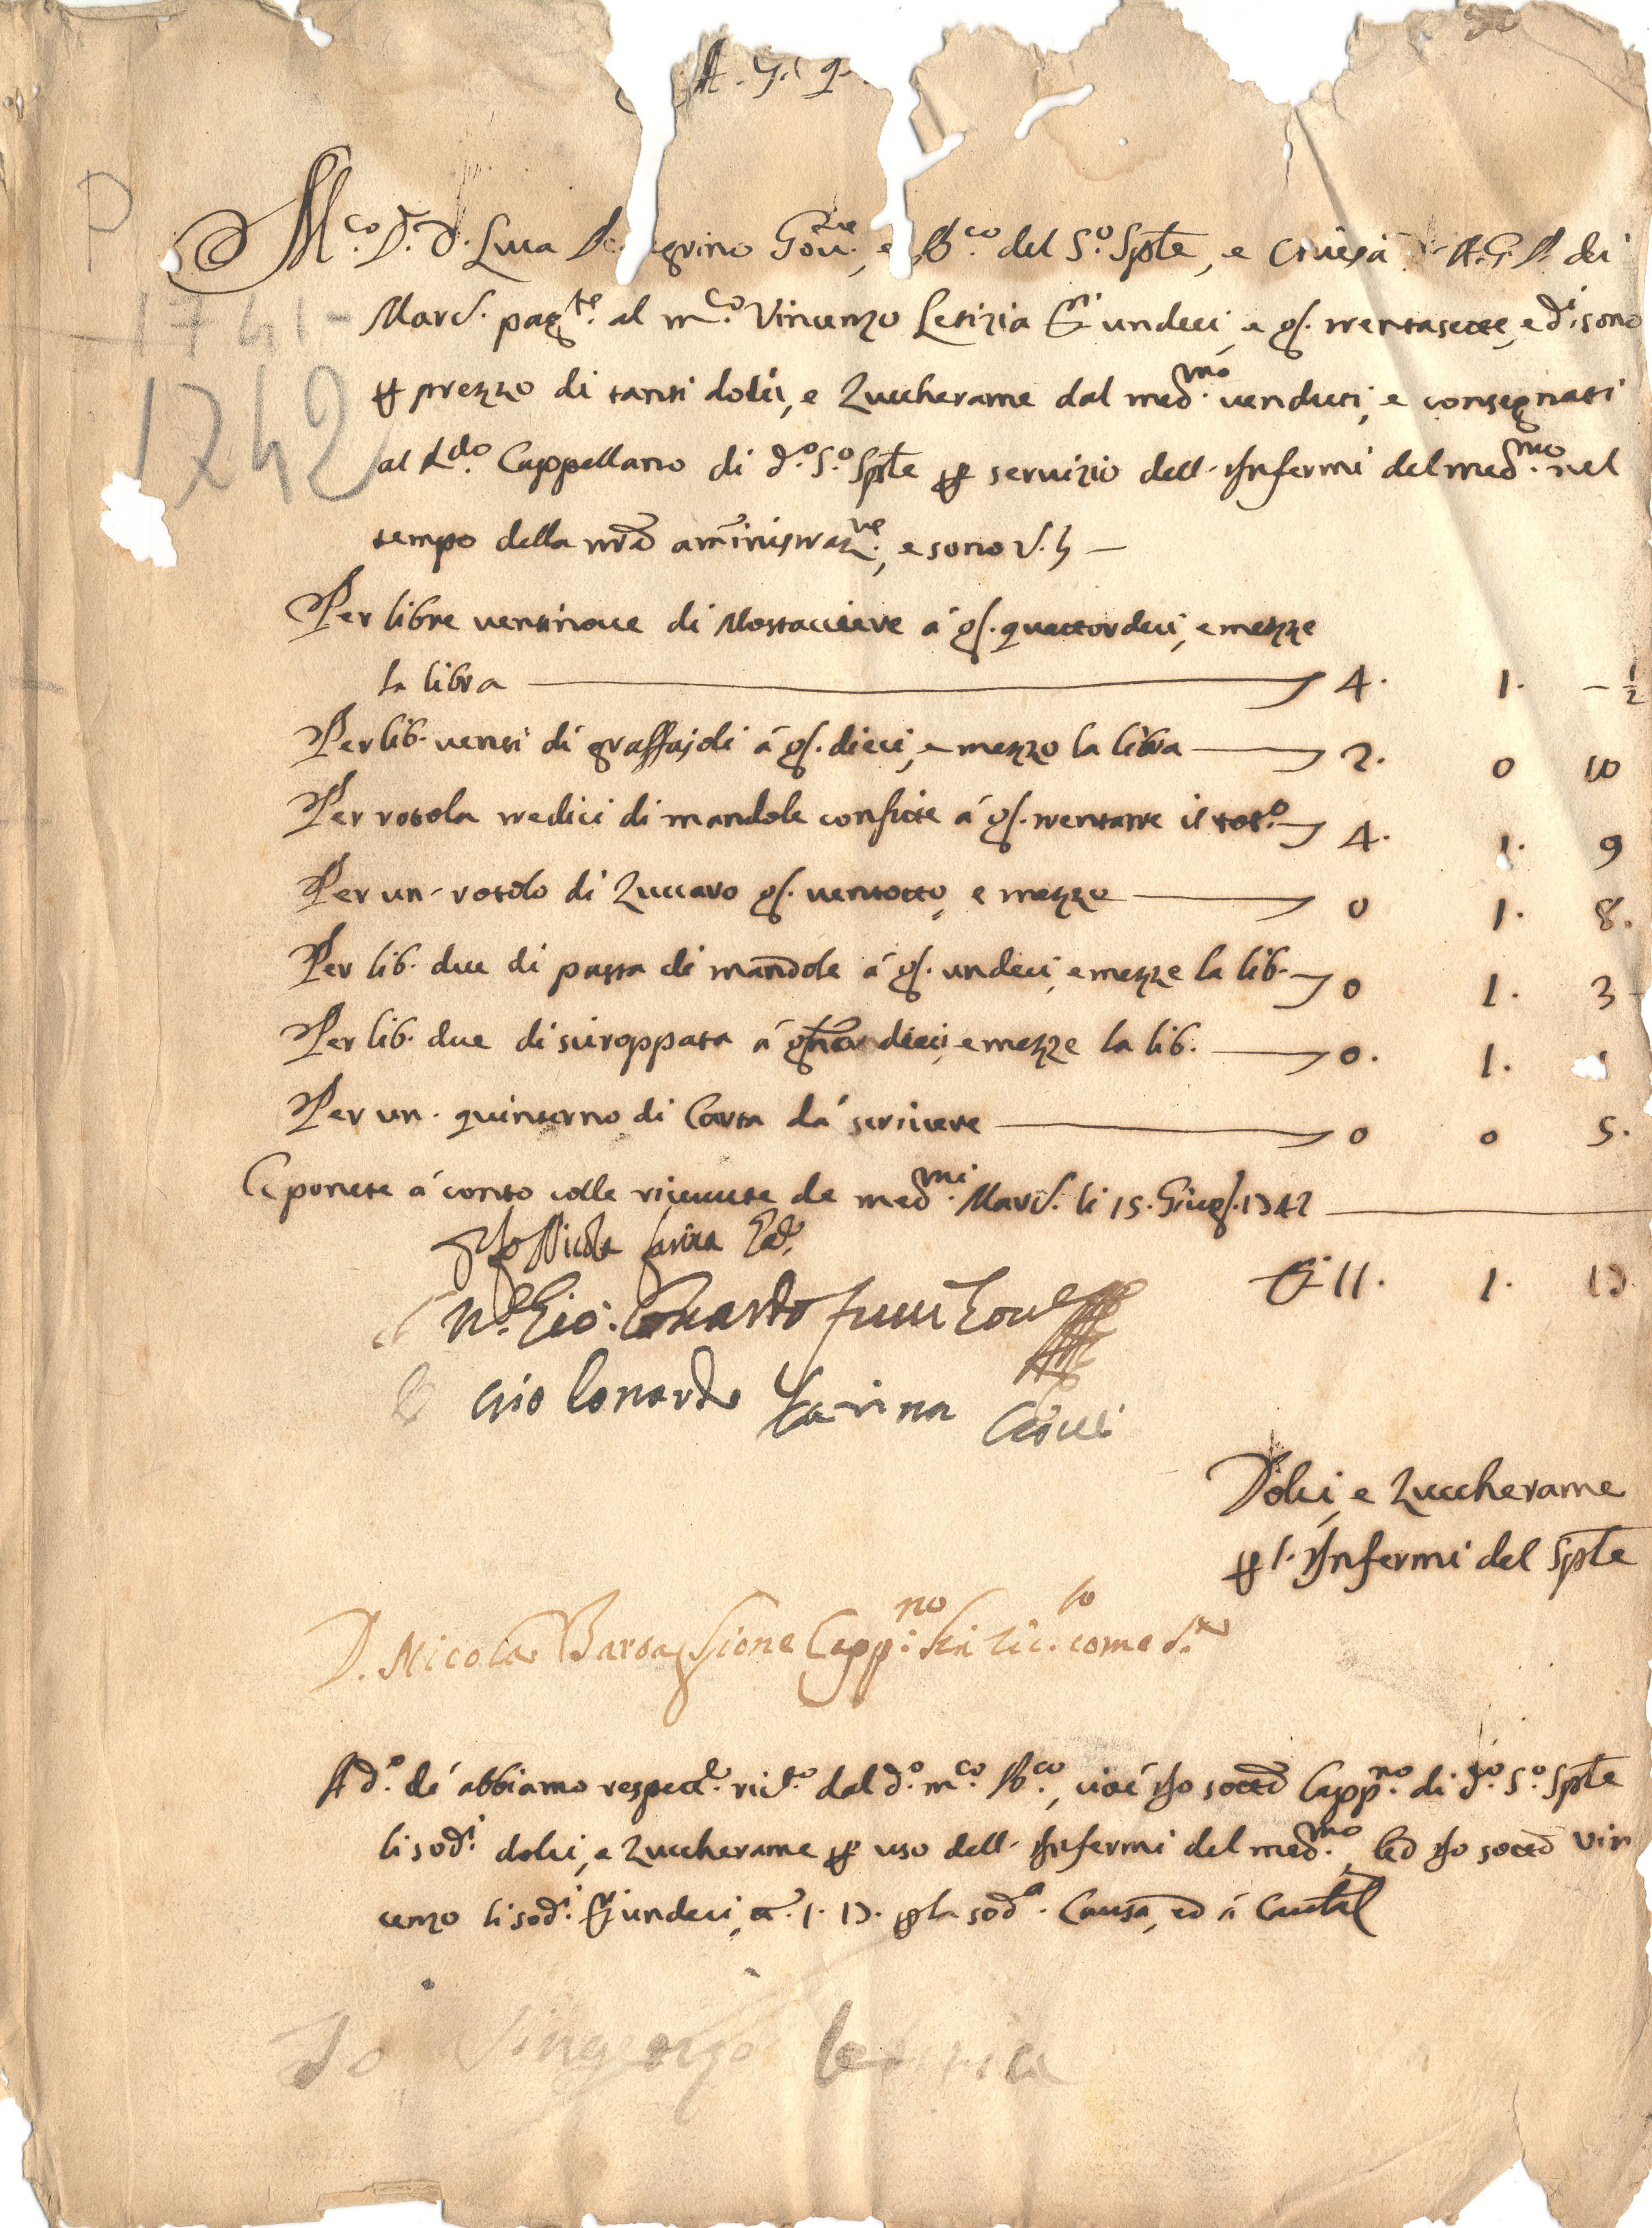 A. G. P.
M.co D. D. Luca Pellegrino Gov.re, e B.co del S.o Sple, e Chiesa A.G.P. di
Mard. pag.te al m.co Vincenzo Letizia D.ti undeci, e g. trentasette, e d.i sono
p prezzo di tanti dolci, e Zuccherame dal med.mo venduti, e consegnati
al R.do Cappellano di d.o S.o Sple p servizio dell'Infermi del med.mo nel
tempo della nra aministraz.ne, e sono V. h —
Per libre ventinove di Mostacciere à g. quattordeci, e mezze
la libra — 4. 1. – 1/2
Per lib. venti di graffajoli à g. dieci, e mezzo la libra — 2. 0 10
Per rotola tredici di mandole confitte à g. trentatre il rot.o — 4. 1. 9
Per un rotolo di Zuccaro g. ventotto, e mezzo — 0 1. 8.
Per lib. due di pasta di mandole à g. undeci, e mezze la lib. — 0 1. 3
Per lib. due di siroppata à dieci, e mezze la lib. — 0. 1.
Per un quinterno di Carta dà scrivere — 0 0 5.
E ponete à conto colle ricevute de med.mi Mard. li 15. Giug. 1742
Nicola Farina
D.ti 11. 1. 17
N.r Gio: Lonardo
Gio Lonardo Farina
Dolci, e Zuccherame
p l'Infermi del Sple
D. Nicola Barbassione Capp.no come s.a
A d.o dì abbiamo respect.e ric.to dal d.o m.co B.co, cioè Io socto Capp.no di d.o S.o Sple
li sod.i dolci, e Zuccherame p uso dell'Infermi del med.mo, ed Io socto Vin
cenzo li sod.i D.ti undeci, t. 1. 17. p la sod.a Causa, ed à Cautel
Io Vingenzo letizia
P
1741-
1742